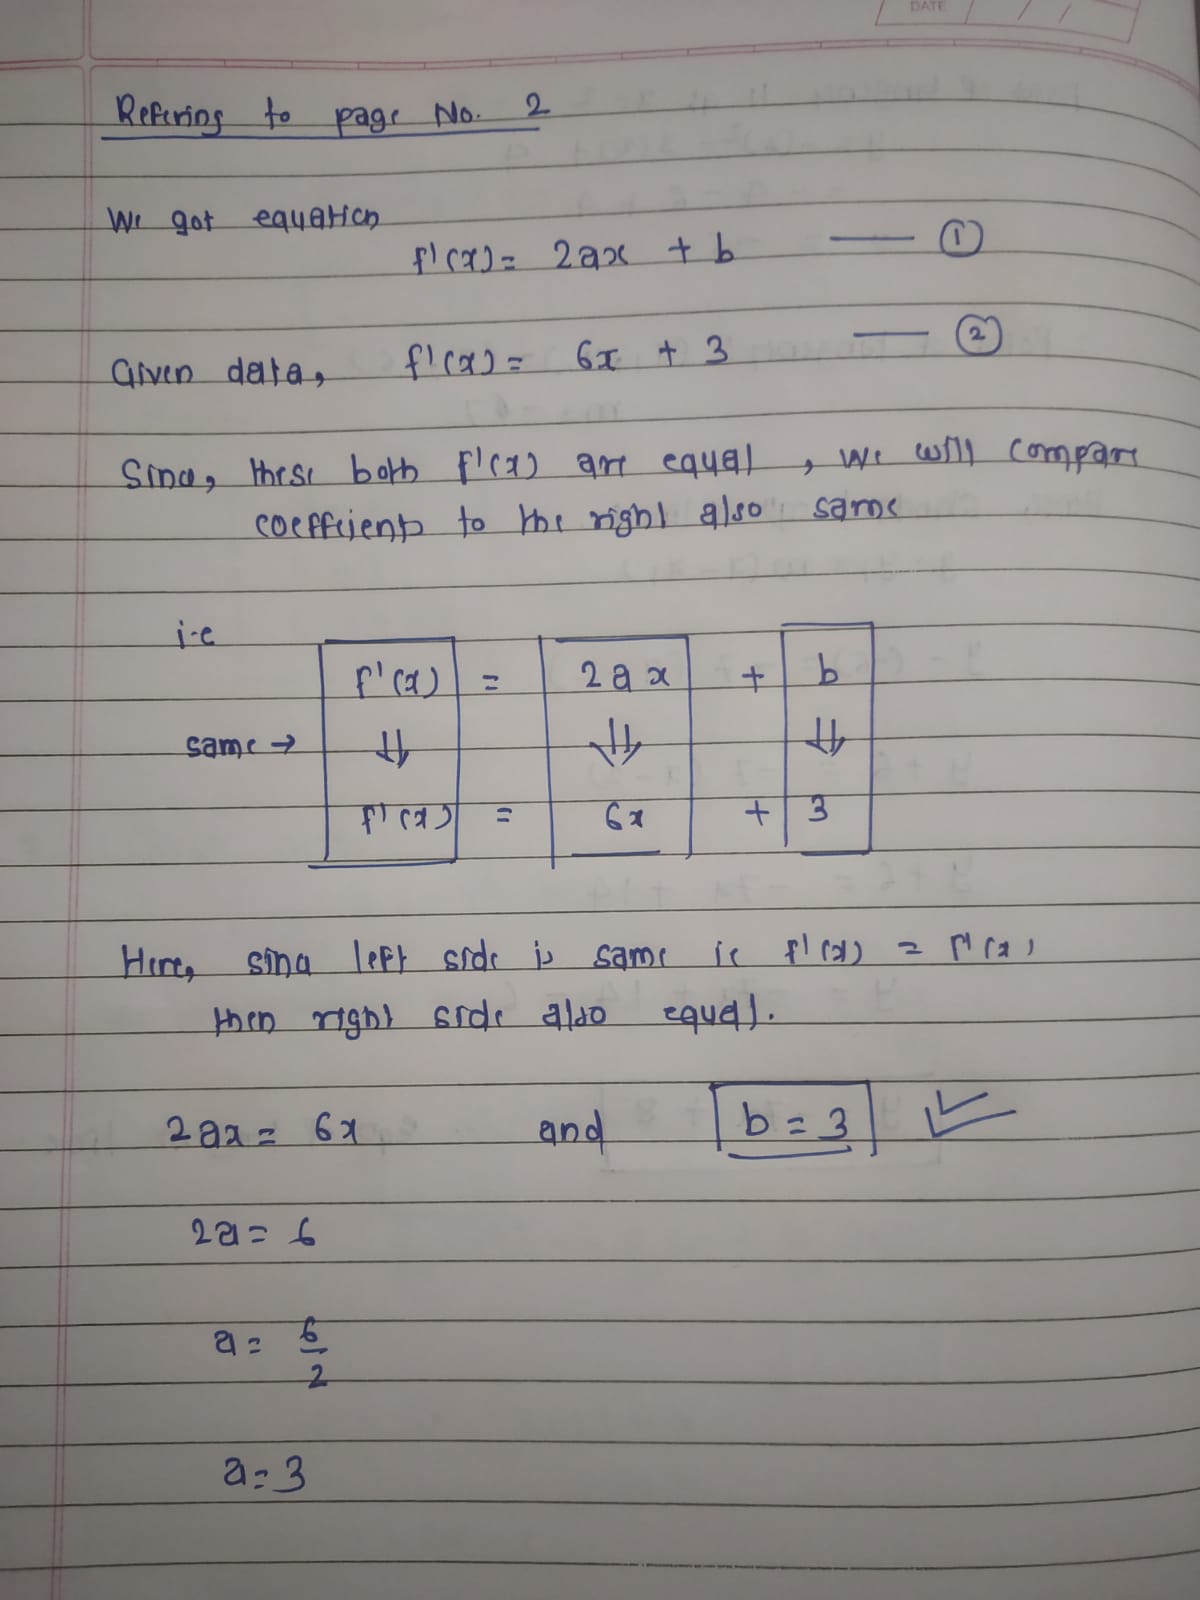 DATE
Refering to page No. 2
We got equation
f'(x) = 2ax + b — ①
Given data, f'(x) = 6x + 3 — ②
Since, these both f'(x) are equal, we will compare
coefficients to the right also same
i.e
f'(x) = 2ax + b
same → ⇓ ⇓ ⇓
f'(x) = 6x + 3
Here, since left side is same ie f'(x) = f'(x)
then right side also equal.
2ax = 6x and b = 3 ✓
2a = 6
a = 6/2
a = 3